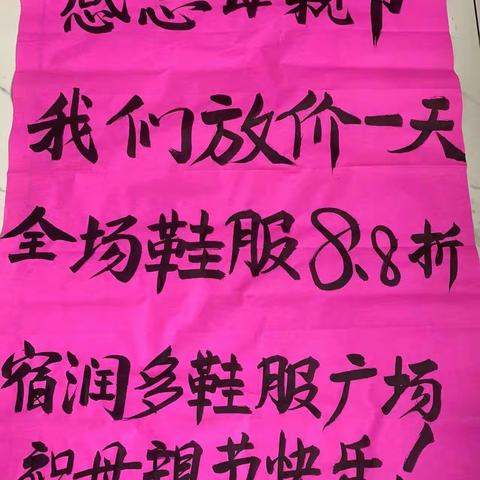 感恩母亲节
我们放价一天
全场鞋服8.8折
宿润多鞋服广场
祝母親节快乐!